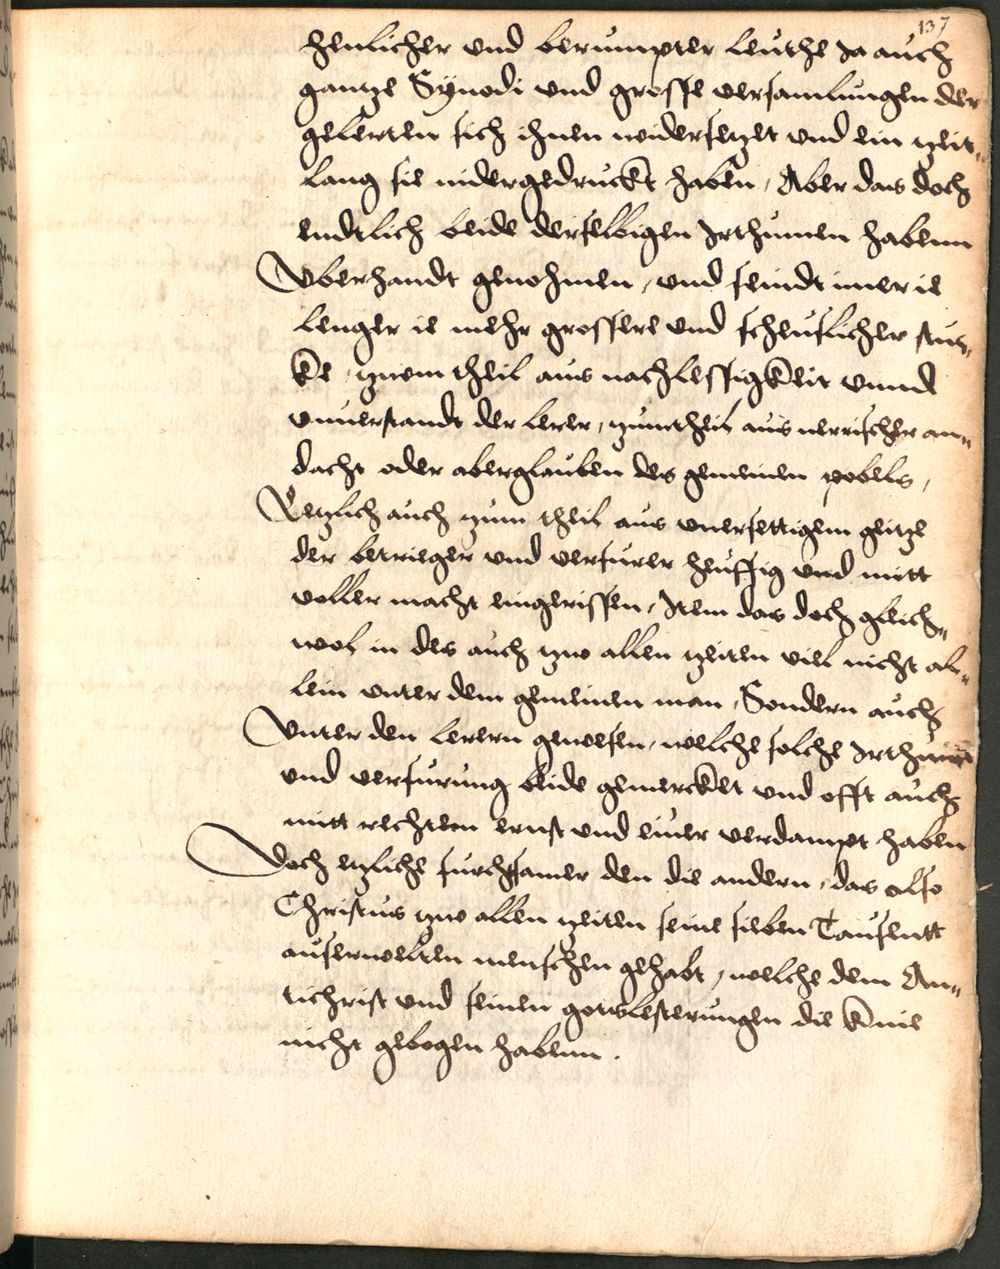 137
henlicher vnd berumpter leuthe Ja auch
gantze Synodi vnd grosse versamlungen der
gelerten sich ihnen widersetzet vnd ein zeit-
lang sie nidergedruckt haben, Aber das doch
endtlich beide derselbigen Irthumen habenn
Vberhandt genohmen, vnd seindt imer ie
lenger ie mehr grossere vnd scheuslicher stuc-
ke, zwem theil aus nachlessigkeit vnnd
vnuerstandt der lerer, zumtheil aus nerrischer an-
dacht oder aberglauben des gemeinen pobels,
Letzlich auch zum theil aus vnersettigem geitze
der betrieger vnd verfurer heuffig vnd mitt
voller macht eingerissen, Item das doch gleich-
wol in des auch zw allen zeiten viel nicht al-
lein vnter dem gemeinen man, Sondern auch
Vnter den lerern gewesen, welche solche Irthumen
vnd verfurung beide gemercket vnd offt auch
mitt rechtem ernst vnd eiuer verdampt haben
Doch etzliche furchtsamer den die andern, das also
Christus zw allen zeiten seine sieben Tausentt
auserwelten menschen gehabt, welche dem An-
tichrist vnd seinen gotslesterungen die knie
nicht gebogen habenn.